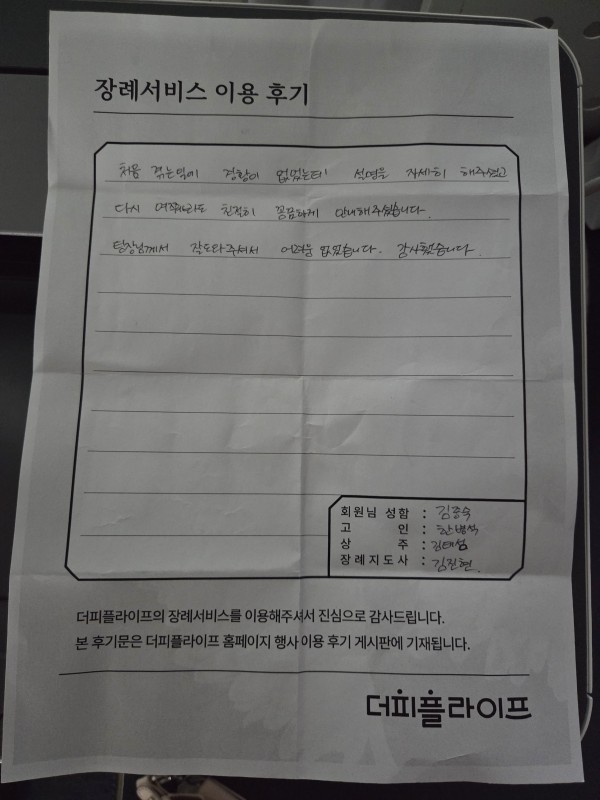 장례서비스 이용 후기
처음 겪는일에 경황이 없었는데 설명을 자세히 해주셨고
다시 여쭤봐도 친절히 꼼꼼하게 안내해주셨습니다.
팀장님께서 잘도와주셔서 어려움 없었습니다. 감사했습니다.
회원님 성함 : 김종숙
고 인 : 한병석
상 주 : 김태섭
장례지도사 : 김진현
더피플라이프의 장례서비스를 이용해주셔서 진심으로 감사드립니다.
본 후기문은 더피플라이프 홈페이지 행사 이용 후기 게시판에 기재됩니다.
더피플라이프